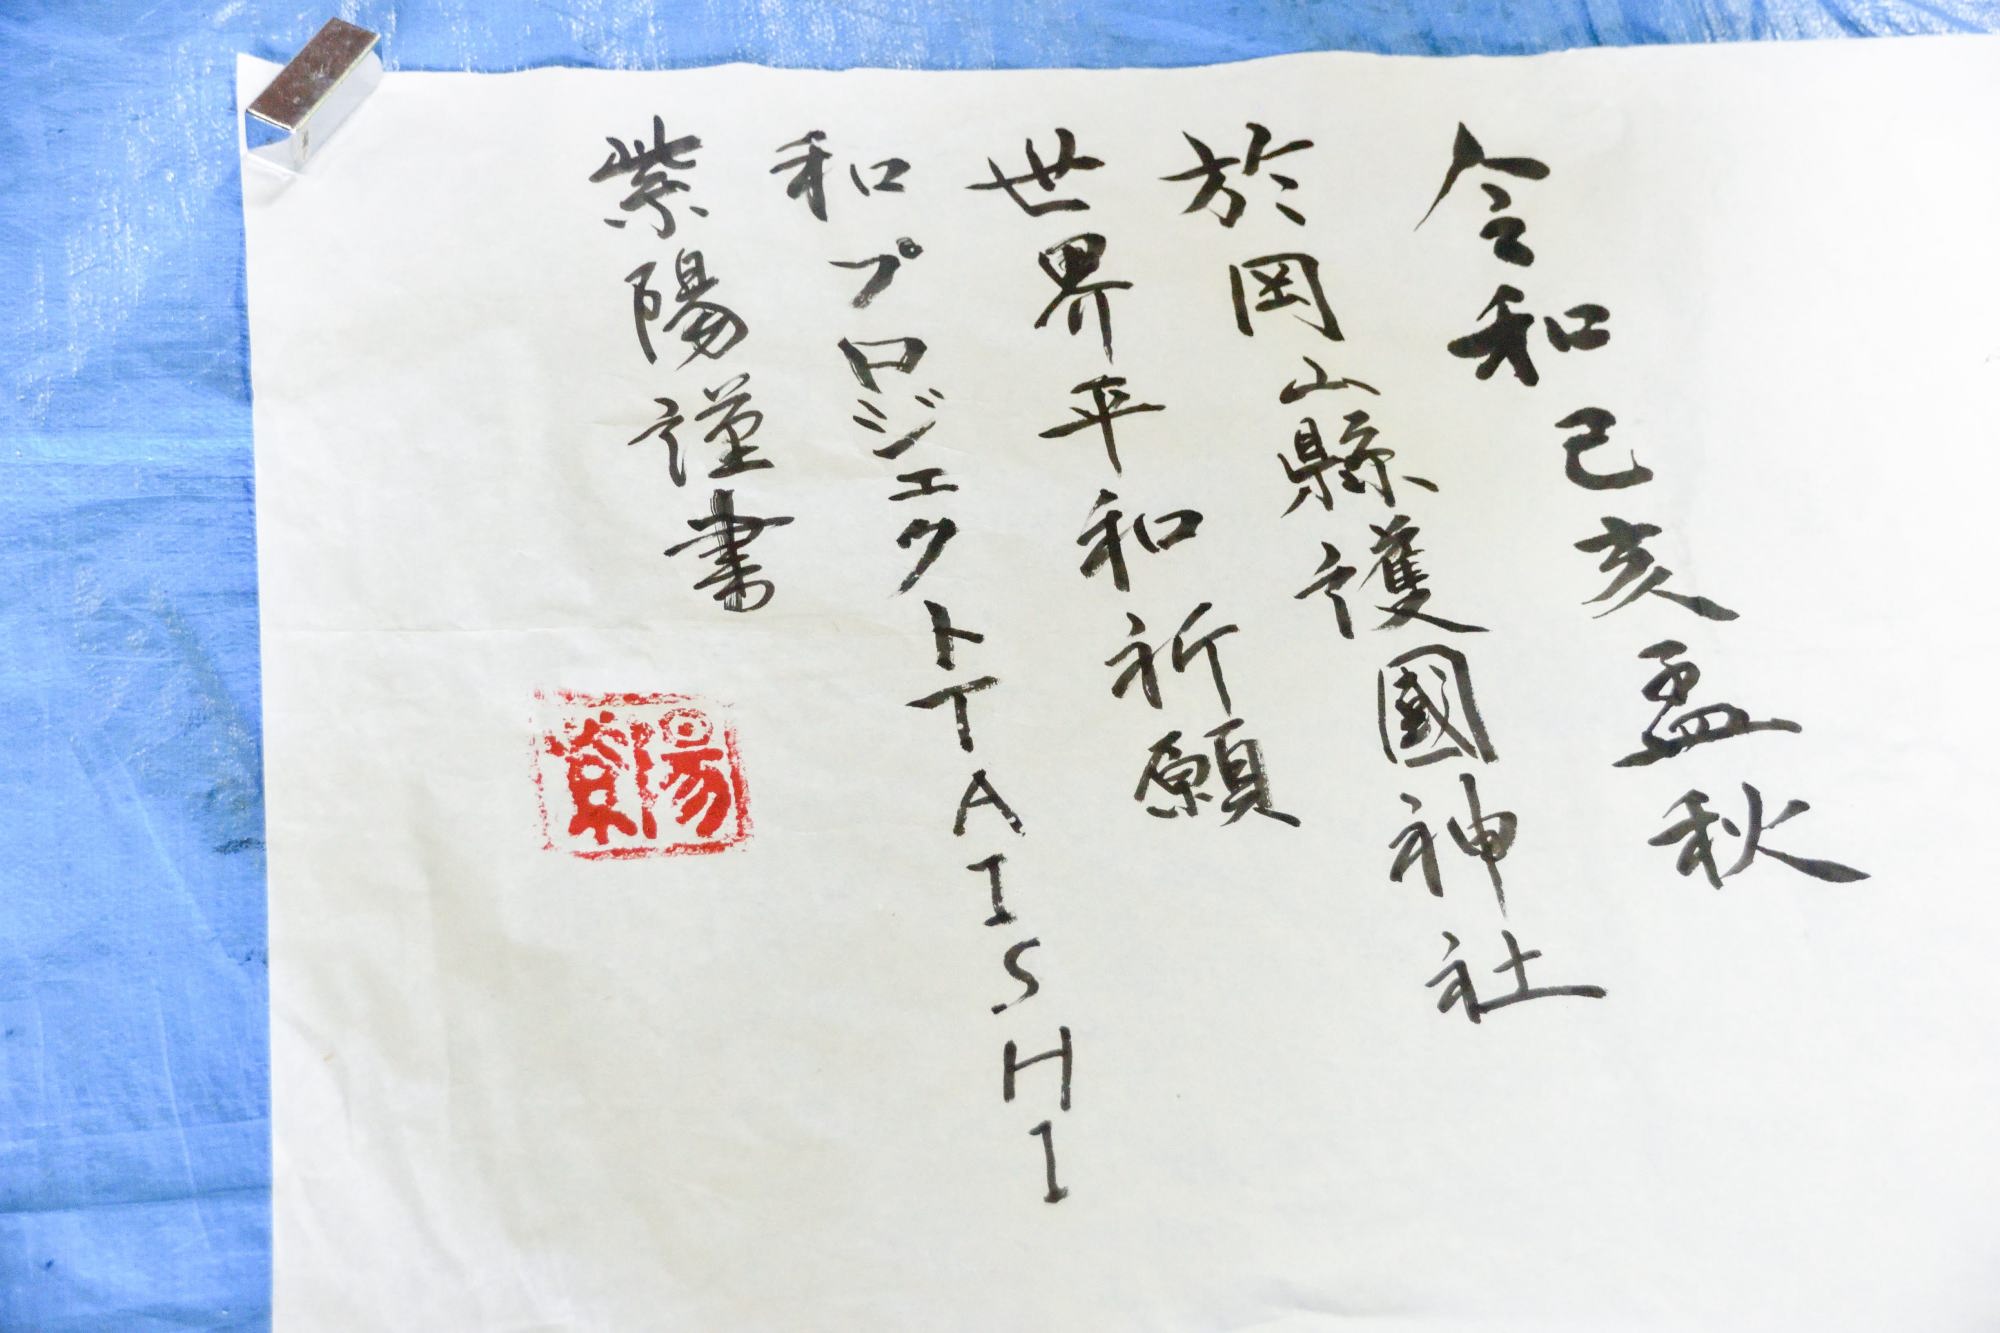 令和己亥孟秋
於岡山縣護國神社
世界平和祈願
和プロジェクトTAISHI
紫陽謹書
紫陽